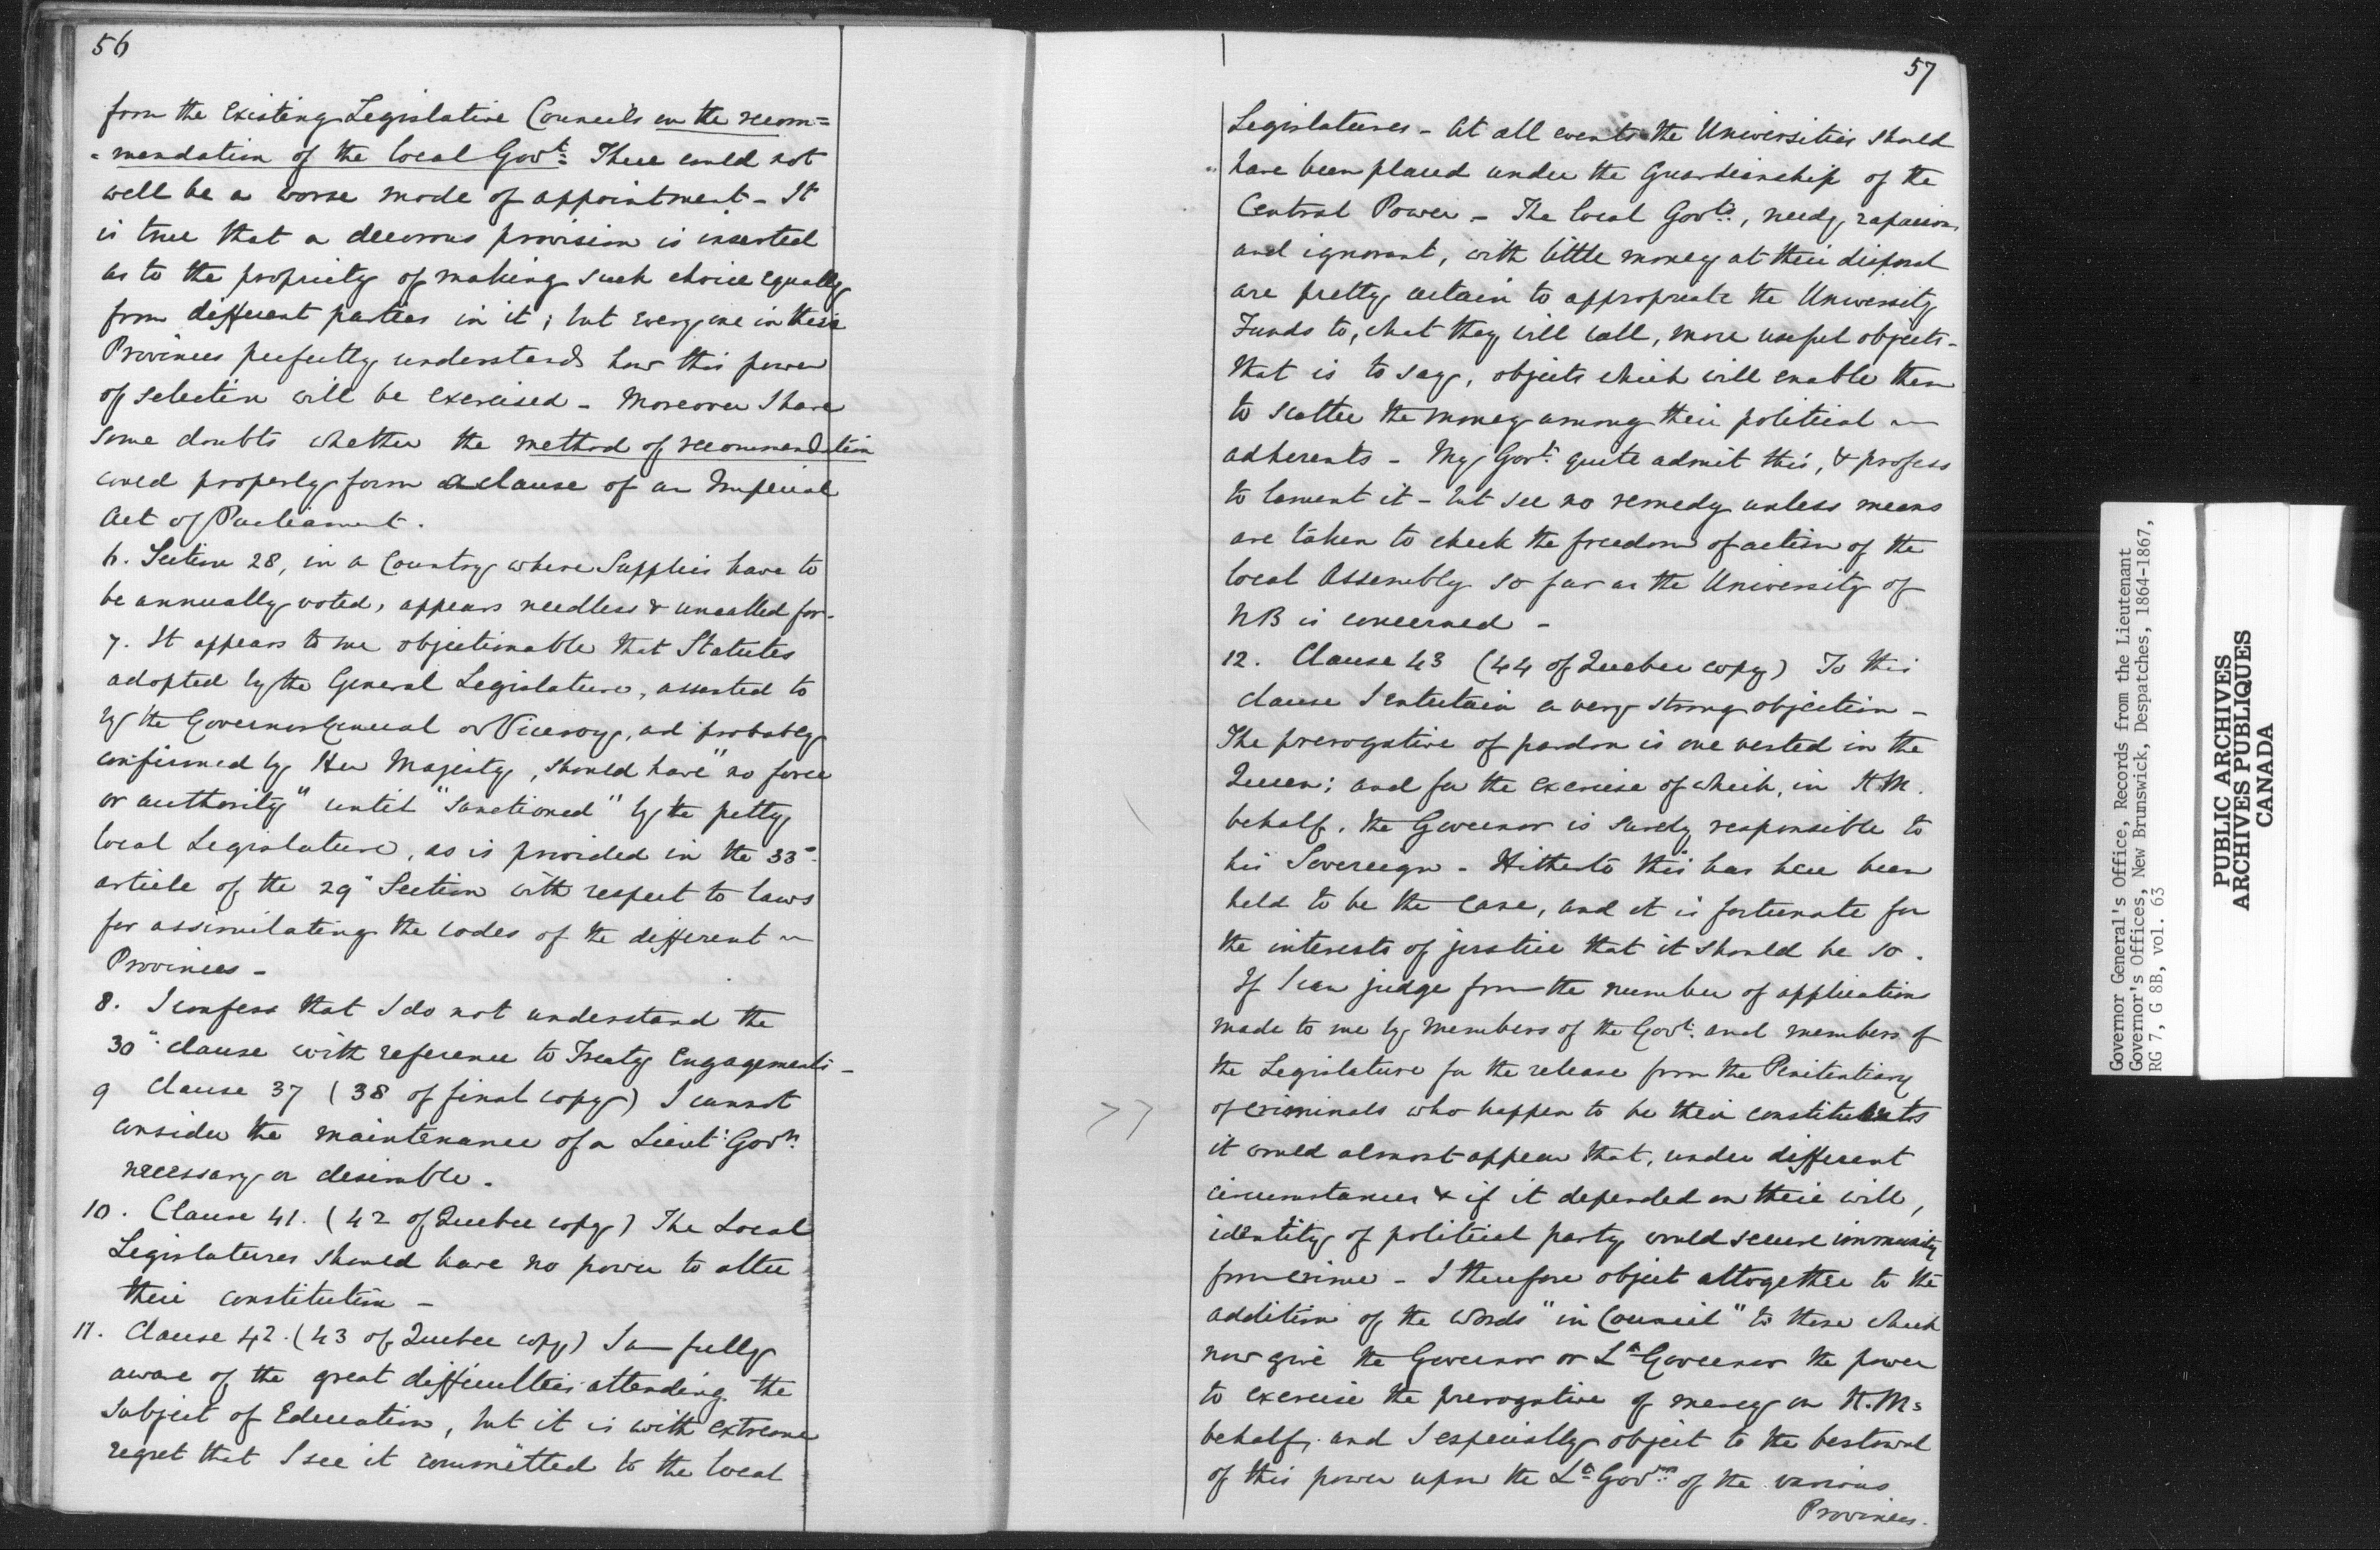 56
from the existing Legislative Councils on the recom=
=mendation of the local Govt. There could not
well be a worse mode of appointment - It
is true that a decorous provision is inserted
as to the propriety of making such choice equally
from different parties in it; but every one in these
Provinces perfectly understands how this power
of selection will be exercised - Moreover I have
some doubts whether the method of recommendation
could properly form a clause of an Imperial
Act of Parliament.
6. Section 28, in a Country where Supplies have to
be annually voted, appears needless & uncalled for -
7. It appears to me objectionable that Statutes
adopted by the General Legislature, assented to
by the Governor General or Viceroy, and probably
confirmed by Her Majesty, should have "no force
or authority" until "sanctioned" by the petty
local Legislature, as is provided in the 33d
article of the 29" Section with respect to laws
for assimilating the codes of the different
Provinces -
8. I confess that I do not understand the
30" clause with reference to Treaty Engagements -
9 Clause 37 (38 of final copy) I cannot
consider the maintenance of a Lieut: Govr.
necessary or desirable.
10. Clause 41. (42 of Quebec copy) The Local
Legislatures should have no power to alter
their constitution -
11. Clause 42. (43 of Quebec copy) I am fully
aware of the great difficulties attending the
subject of Education, but it is with extreme
regret that I see it committed to the local
57
Legislatures - At all events the Universities should
have been placed under the Guardianship of the
Central Power - The local Govts., needy, rapacious
and ignorant, with little money at their disposal
are pretty certain to appropriate the University
Funds to, what they will call, more useful objects -
that is to say, objects which will enable them
to scatter the money among their political
adherents - My Govt. quite admit this, & profess
to lament it - but see no remedy unless means
are taken to check the freedom of action of the
local Assembly so far as the University of
NB is concerned -
12. Clause 43 (44 of Quebec copy) To this
clause I entertain a very strong objection -
The prerogative of pardon is one vested in the
Queen; and for the exercise of which, in H.M.
behalf, the Governor is surely responsible to
his Sovereign - Hitherto this has here been
held to be the case, and it is fortunate for
the interests of justice that it should be so.
If I can judge from the number of applications
made to me by members of the Govt. and members of
the Legislature for the release from the Penitentiary
of criminals who happen to be their constituents
it would almost appear that, under different
circumstances & if it depended on their will,
identity of political party would secure immunity
from crime - I therefore object altogether to the
addition of the words "in Council" to those which
now give the Governor or Lt. Governor the power
to exercise the prerogative of mercy on H.Ms
behalf, and I especially object to the bestowal
of this power upon the Lt. Govrs. of the various
Provinces.
Governor General's Office, Records from the Lieutenant
Governor's Offices, New Brunswick, Despatches, 1864-1867,
RG 7, G 8B, vol. 63
PUBLIC ARCHIVES
ARCHIVES PUBLIQUES
CANADA